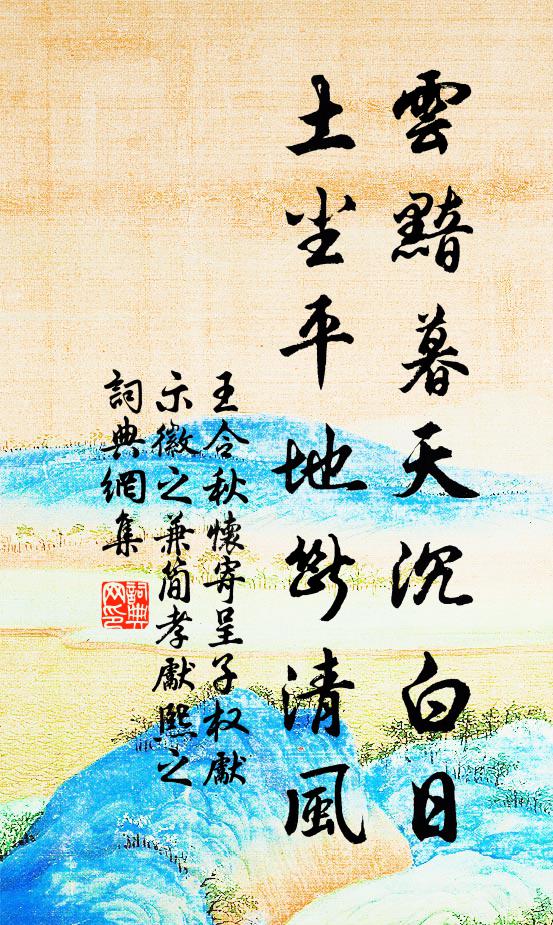 雲黯暮天沉白日
土坐平地斷清風
王令秋懷寄呈子权獻
示徽之兼簡孝獻熙之
詞典網集
詞典
网印